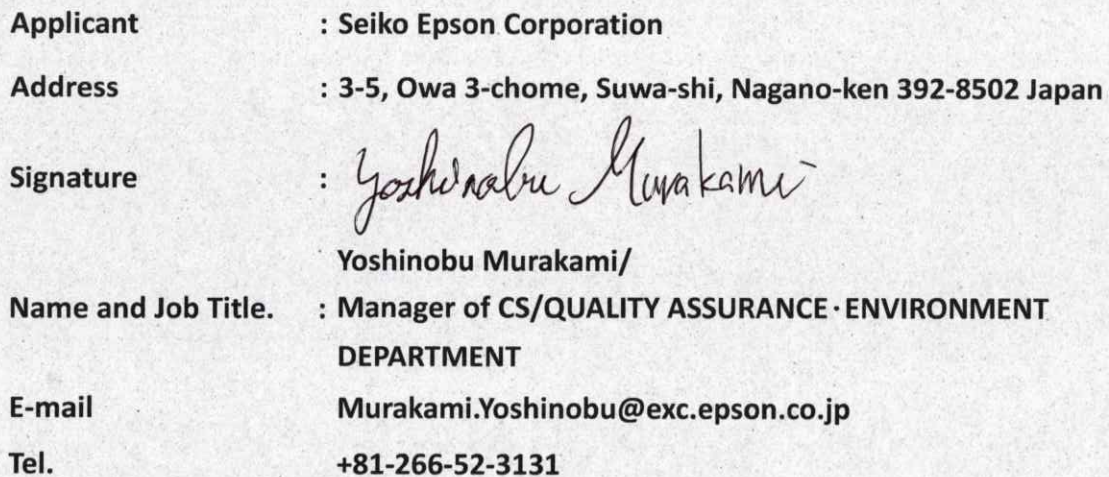 Applicant : Seiko Epson Corporation
Address : 3-5, Owa 3-chome, Suwa-shi, Nagano-ken 392-8502 Japan
Signature : Yoshinobu Murakami
Yoshinobu Murakami/
Name and Job Title. : Manager of CS/QUALITY ASSURANCE・ENVIRONMENT
DEPARTMENT
E-mail Murakami.Yoshinobu@exc.epson.co.jp
Tel. +81-266-52-3131